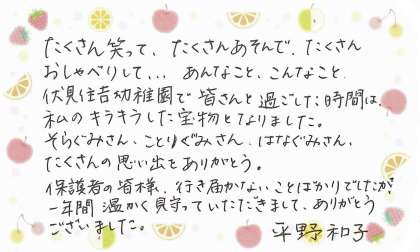 たくさん笑って、たくさんあそんで、たくさん
おしゃべりして... あんなこと、こんなこと、
伏見住吉幼稚園で皆さんと過ごした時間は、
私のキラキラした宝物となりました。
そらぐみさん、ことりぐみさん、はなぐみさん、
たくさんの思い出をありがとう。
保護者の皆様、行き届かないことばかりでしたが、
一年間温かく見守っていただきまして、ありがとう
ございました。
平野和子